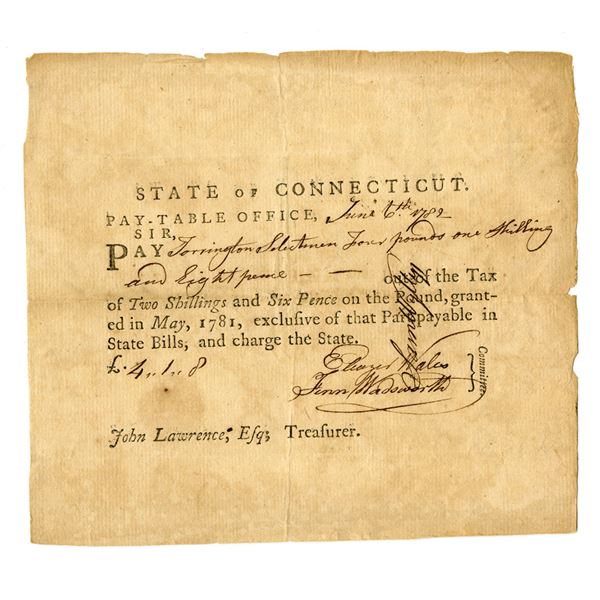 STATE OF CONNECTICUT.
PAY-TABLE OFFICE, June 6th 1782
SIR,
PAY Torrington Selectmen Four pounds one Shilling
and Eight pence — — out of the Tax
of Two Shillings and Six Pence on the Pound, grant-
ed in May, 1781, exclusive of that Part payable in
State Bills; and charge the State.
£. 4,, 1,, 8
Eleazer Wales
Fenn Wadsworth
} Committee.
John Lawrence, Esq; Treasurer.